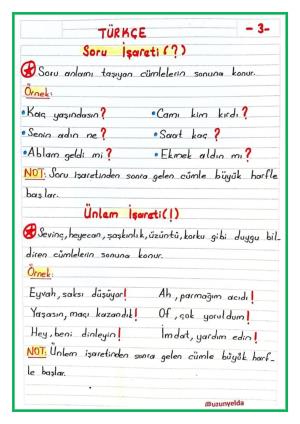 TÜRKÇE
- 3-
Soru İşareti (?)
Soru anlamı taşıyan cümlelerin sonuna konur.
Örnek:
• Kaç yaşındasın? • Camı kim kırdı?
• Senin adın ne? • Saat kaç?
• Ablam geldi mi? • Ekmek aldın mı?
NOT: Soru işaretinden sonra gelen cümle büyük harfle
başlar.
Ünlem İşareti(!)
Sevinç, heyecan, şaşkınlık, üzüntü, korku gibi duygu bil-
diren cümlelerin sonuna konur.
Örnek:
Eyvah, saksı düşüyor! Ah, parmağım acıdı!
Yaşasın, maçı kazandık! Of, çok yoruldum!
Hey, beni dinleyin! İmdat, yardım edin!
NOT: Ünlem işaretinden sonra gelen cümle büyük harf-
le başlar.
@uzunyelda